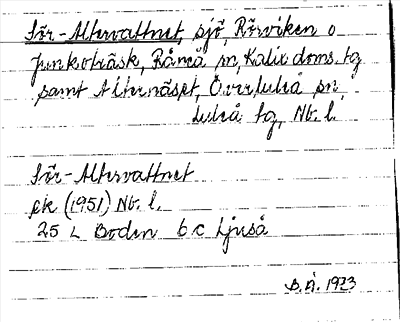 Sör-Altervattnet, sjö, Rörviken o
Junkoträsk, Råneå sn, Kalix doms. tg
samt Alternäset, Överluleå sn,
Luleå tg, Nb. l.
Sör-Altervattnet
ek (1951) Nb. l.
25 L Boden 6 c Ljuså
B.Å. 1973